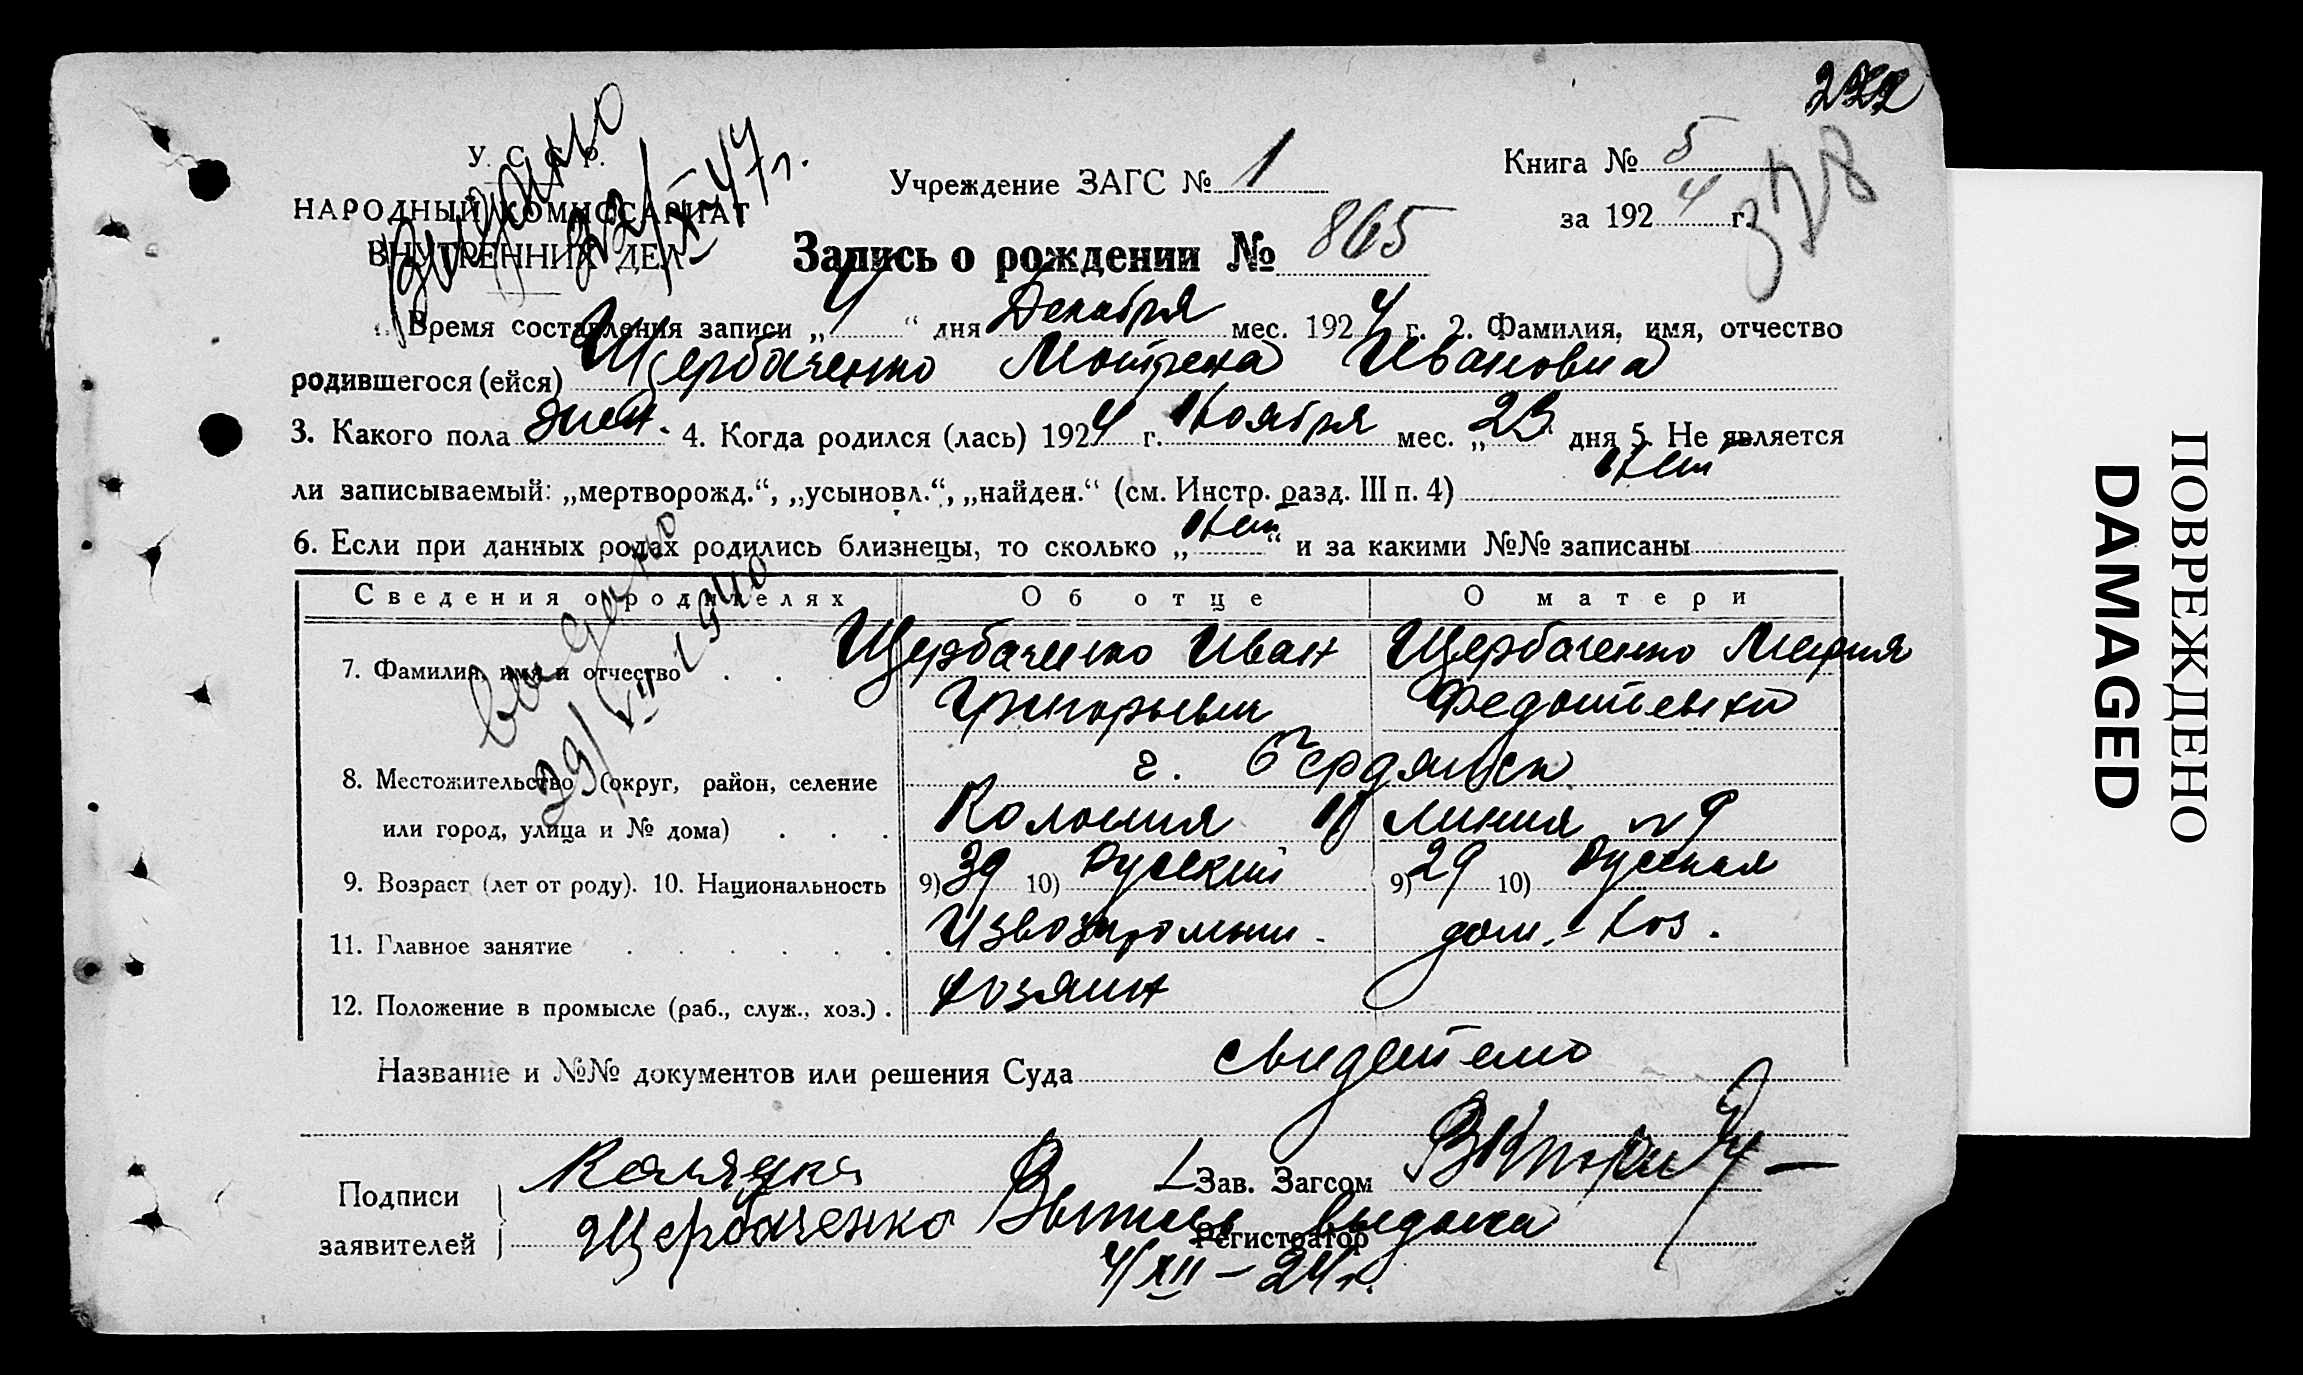 222
378
У. С. С. Р.
НАРОДНЫЙ КОММИССАРИАТ
ВНУТРЕННИХ ДЕЛ
Выдано
22/X-47г.
Учреждение ЗАГС № 1
Книга № 5
за 1924 г.
Запись о рождении № 865
1. Время составления записи „4“ дня Декабря мес. 1924 г. 2. Фамилия, имя, отчество
родившегося (ейся) Щербаченко Мотрена Ивановна
3. Какого пола жен. 4. Когда родился (лась) 1924 г. Ноября мес. „23“ дня 5. Не является
ли записываемый: „мертворожд.“, „усыновл.“, „найден.“ (см. Инстр. разд. III п. 4) Нет
6. Если при данных родах родились близнецы, то сколько „Нет“ и за какими №№ записаны
Выдано
29/VII 1940
Сведения о родителях Об отце О матери
7. Фамилия, имя и отчество Щербаченко Иван Щербаченко Мария
Григорьевич Федотьевна
8. Местожительство (округ, район, селение г. Бердянск
или город, улица и № дома) Колония линия № 9
9. Возраст (лет от роду). 10. Национальность 9) 39 10) Русский 9) 29 10) Русская
11. Главное занятие Извозпромыш. дом.-хоз.
12. Положение в промысле (раб., служ., хоз.) хозяин
Название и №№ документов или решения Суда
Подписи
заявителей
Щербаченко
Зав. Загсом
Регистратор
Выпись выдана
4/XII-24г.
ПОВРЕЖДЕНО
DAMAGED